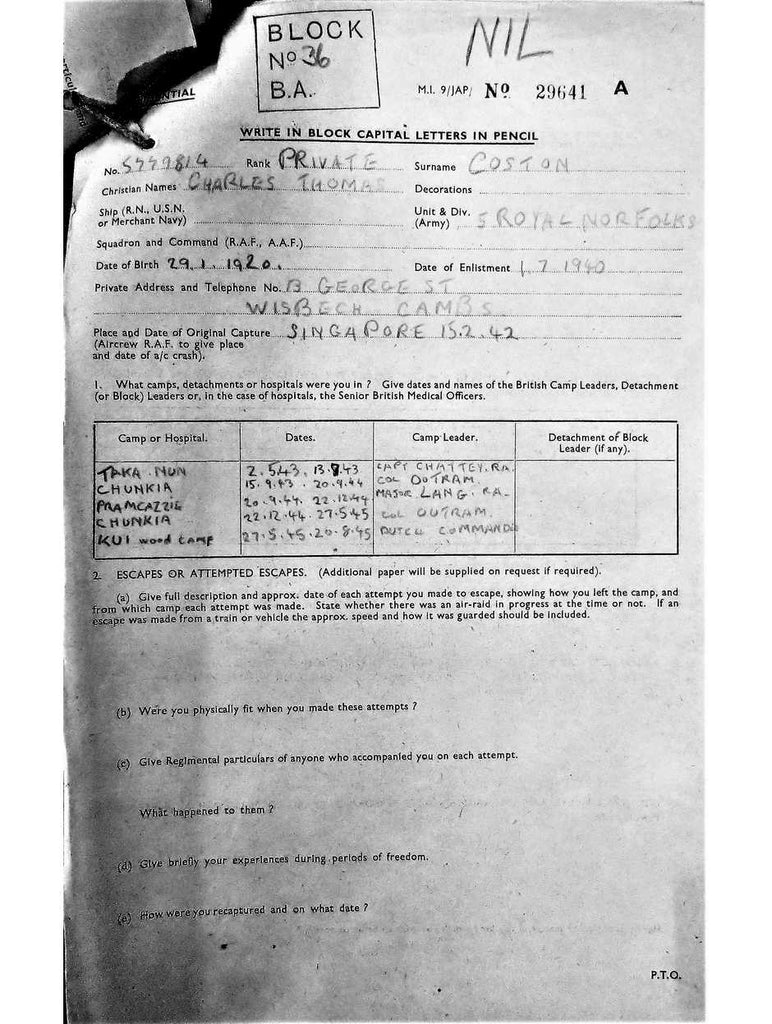 BLOCK
No 36
B.A.
NIL
M.I. 9/JAP/ No 29641 A
WRITE IN BLOCK CAPITAL LETTERS IN PENCIL
No. 5779814 Rank PRIVATE Surname COSTON
Christian Names CHARLES THOMAS Decorations
Ship (R.N., U.S.N. or Merchant Navy)
Unit & Div. (Army) 5 ROYAL NORFOLKS
Squadron and Command (R.A.F., A.A.F.)
Date of Birth 29.1.1920. Date of Enlistment 1 7 1940
Private Address and Telephone No. 13 GEORGE ST
WISBECH CAMBS
Place and Date of Original Capture SINGAPORE 15.2.42
(Aircrew R.A.F. to give place
and date of a/c crash).
1. What camps, detachments or hospitals were you in ? Give dates and names of the British Camp Leaders, Detachment
(or Block) Leaders or, in the case of hospitals, the Senior British Medical Officers.
Camp or Hospital. Dates. Camp Leader. Detachment of Block Leader (if any).
TAKA NUN 2.5.43. 13.8.43 CAPT CHATTEY. RA.
CHUNKIA 15.9.43 . 20.9.44 COL OUTRAM.
PRAMCAZZIE 20.9.44. 22.12.44 MAJOR LANG. RA.
CHUNKIA 22.12.44. 27.5.45 COL OUTRAM.
KUI wood camp 27.5.45.20.8.45 DUTCH COMMAND
2. ESCAPES OR ATTEMPTED ESCAPES. (Additional paper will be supplied on request if required).
(a) Give full description and approx. date of each attempt you made to escape, showing how you left the camp, and
from which camp each attempt was made. State whether there was an air-raid in progress at the time or not. If an
escape was made from a train or vehicle the approx. speed and how it was guarded should be included.
(b) Were you physically fit when you made these attempts ?
(c) Give Regimental particulars of anyone who accompanied you on each attempt.
What happened to them ?
(d) Give briefly your experiences during periods of freedom.
(e) How were you recaptured and on what date ?
P.T.O.